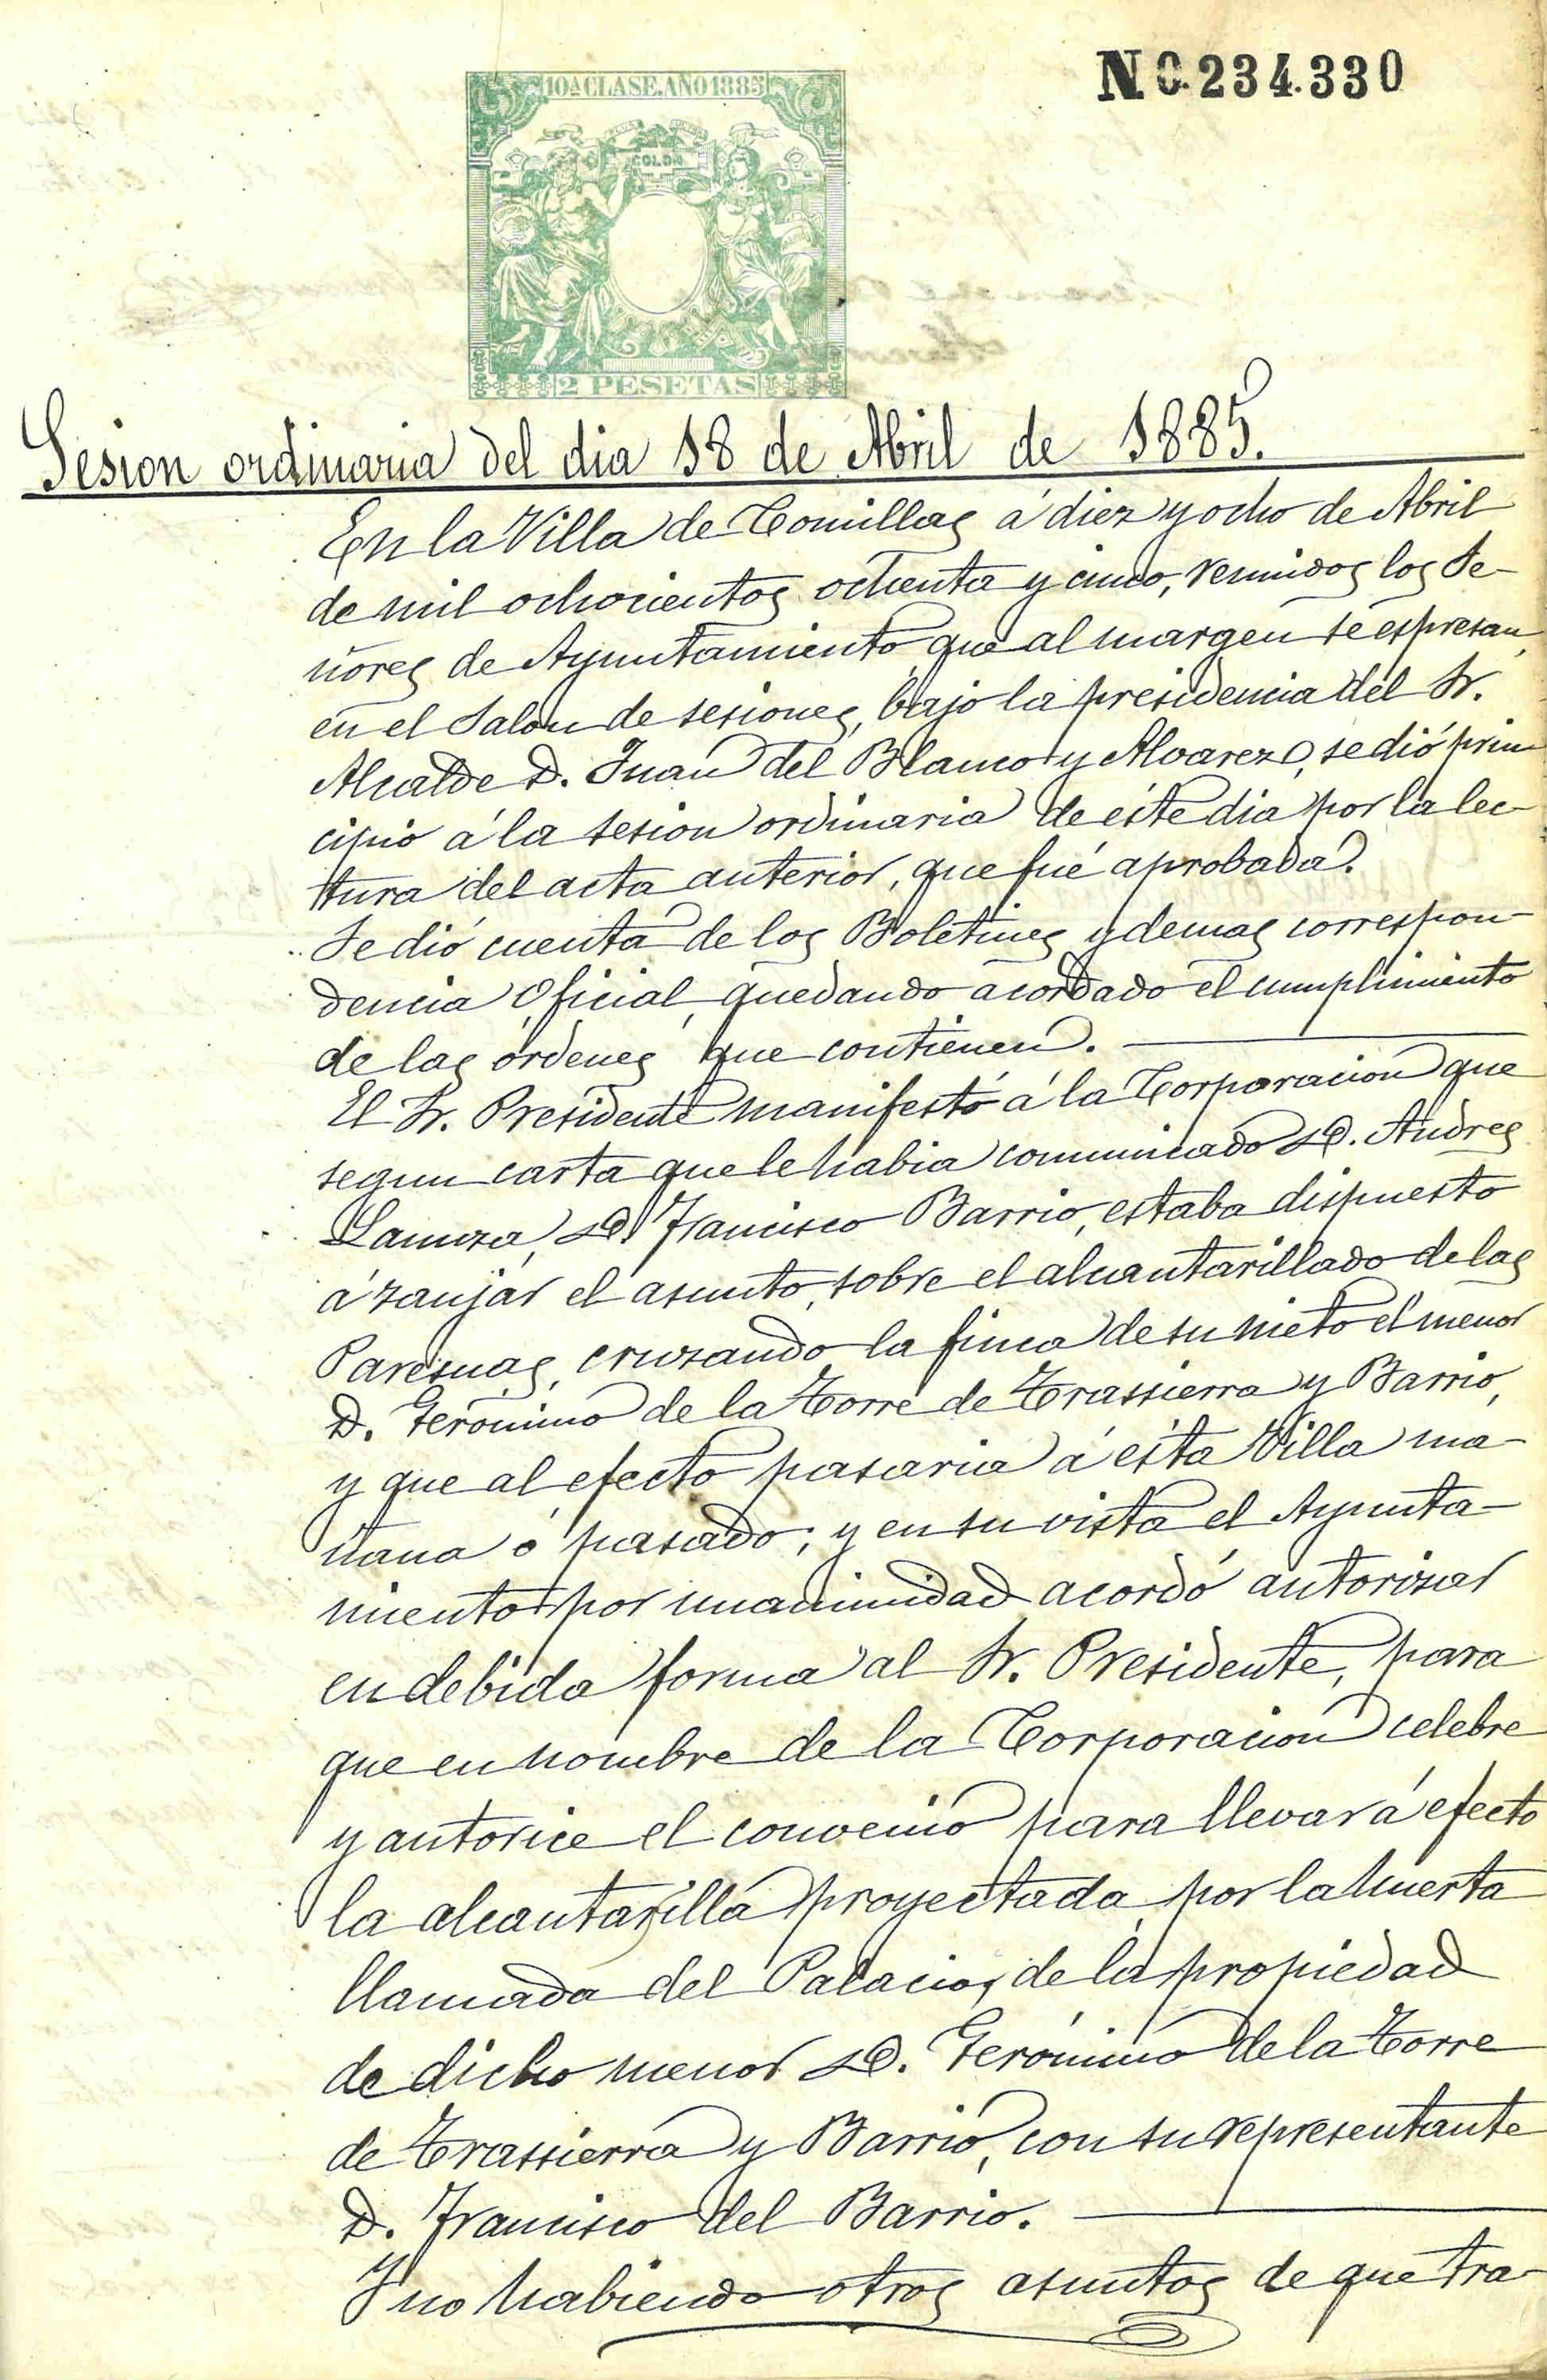 N. 0.234.330
10ª CLASE. AÑO 1885
COLON
2 PESETAS
Sesion ordinaria del dia 18 de Abril de 1885.
En la Villa de Comillas á diez y ocho de Abril
de mil ochocientos ochenta y cinco, reunidos los Se-
ñores de Ayuntamiento que al margen se espresan,
en el Salon de sesiones, bajo la presidencia del Sr.
Alcalde D. Juan del Blanco y Alvarez, se dió prin
cipio á la sesion ordinaria de éste dia por la lec-
tura del acta anterior, que fué aprobada.
Se dió cuenta de los Boletines y demas correspon-
dencia Oficial, quedando acordado el cumplimiento
de las órdenes que contienen.
El Sr. Presidente manifestó á la Corporacion que
segun carta que le habia comunicado D. Andres
Lamuza, D. Francisco Barrio, estaba dispuesto
á zanjar el asunto, sobre el alcantarillado de las
cruzando la finca de su nieto el menor
D. Gerónimo de la Torre de Trassierra y Barrio,
y que al efecto pasaria á ésta Villa ma-
ñana ó pasado; y en su vista el Ayunta-
miento por unanimidad acordó autorizar
en debida forma al Sr. Presidente, para
que en nombre de la Corporacion celebre
y autorice el convenio para llevar á efecto
la alcantarilla proyectada, por la huerta
llamada del Palacio, de la propiedad
de dicho menor D. Gerónimo de la Torre
de Trassierra y Barrio, con su representante
D. Francisco del Barrio.
Y no habiendo otros asuntos de que tra-